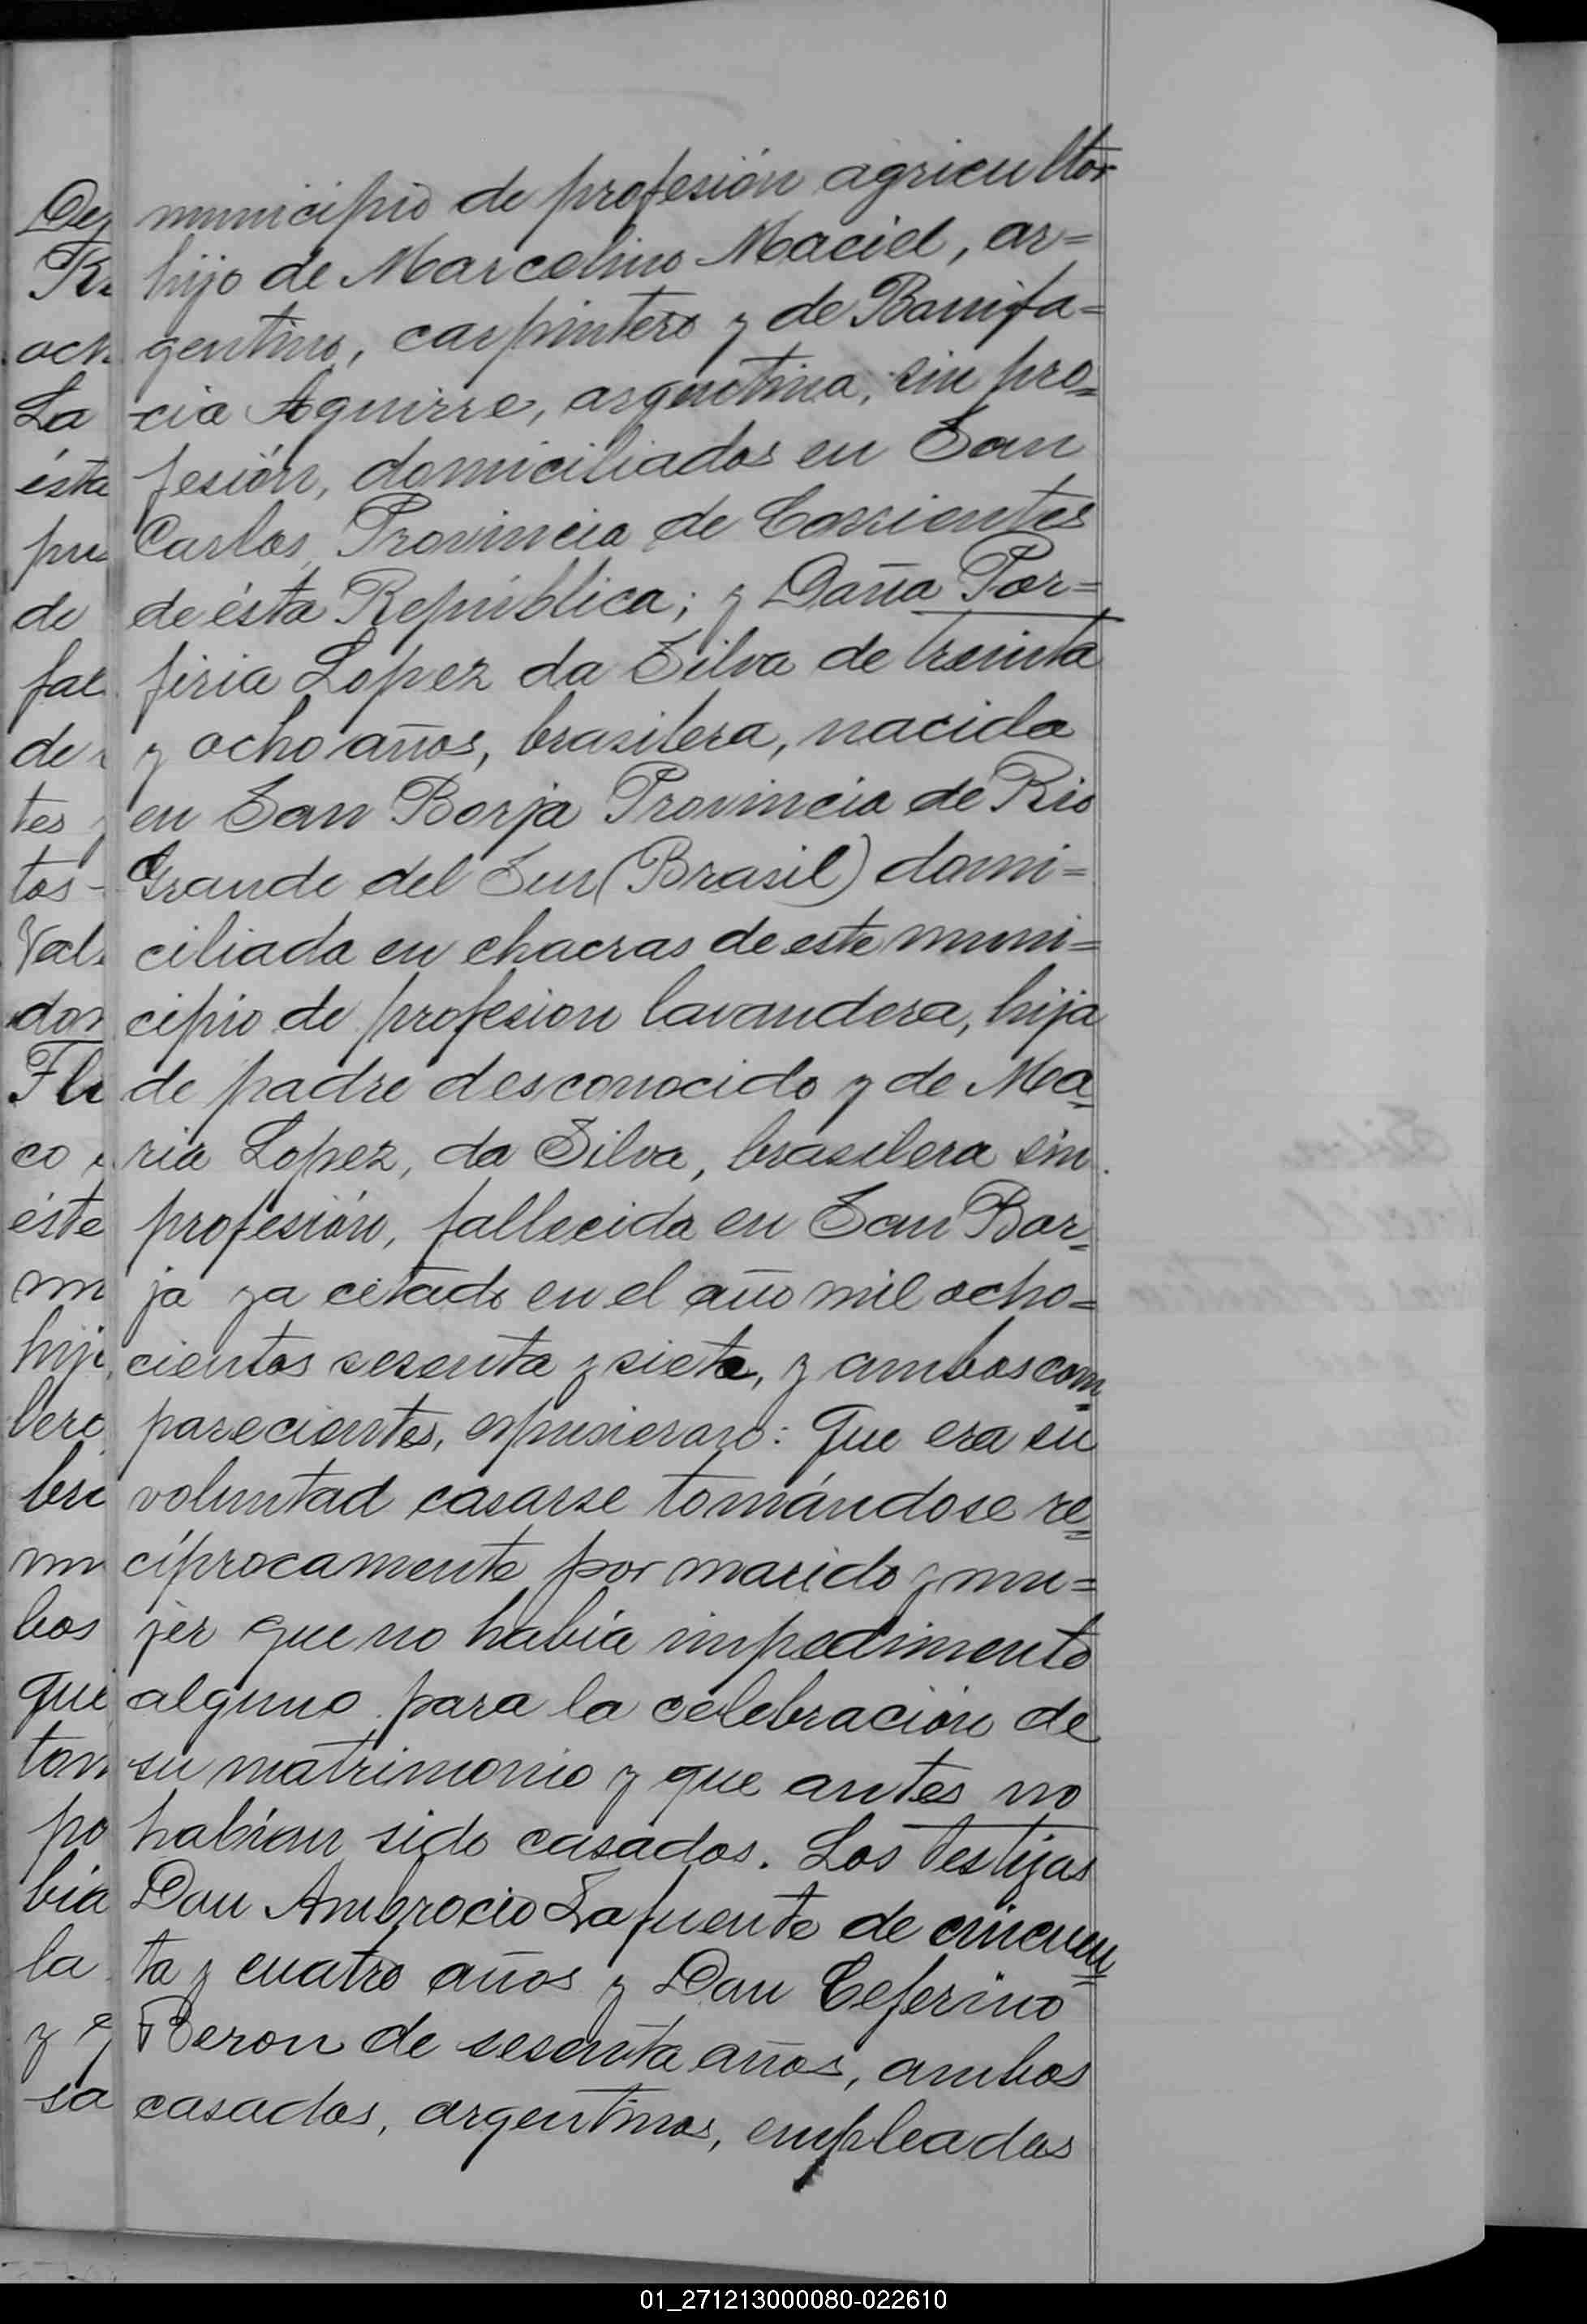 municipio de profesión agricultor
hijo de Marcelino Maciel, ar=
gentino, carpintero y de Bonifa=
cia Aguirre, argentina, sin pro=
fesión, domiciliados en San
Carlos, Provincia de Corrientes
de ésta República; y Doña Por=
firia Lopez da Silva de treinta
y ocho años, brasilera, nacida
en San Borja Provincia de Rio
Grande del Sur (Brasil) domi=
ciliada en chacras de este muni=
cipio de profesion lavandera, hija
de padre desconocido y de Ma=
ria Lopez, da Silva, brasilera sin
profesión, fallecida en San Bor=
ja ya citado en el año mil ocho=
cientos sesenta y siete, y ambos com=
parecientes, espusieron: Que era su
voluntad casarse tomándose re=
cíprocamente por marido y mu=
jer que no había impedimento
alguno para la celebración de
su matrimonio y que antes no
habían sido casados. Los testigos
Don Ambrocio Lafuente de cincuen=
ta y cuatro años y Don Ceferino
Beron de sesenta años, ambos
casados, argentinos, empleados
01_271213000080-022610